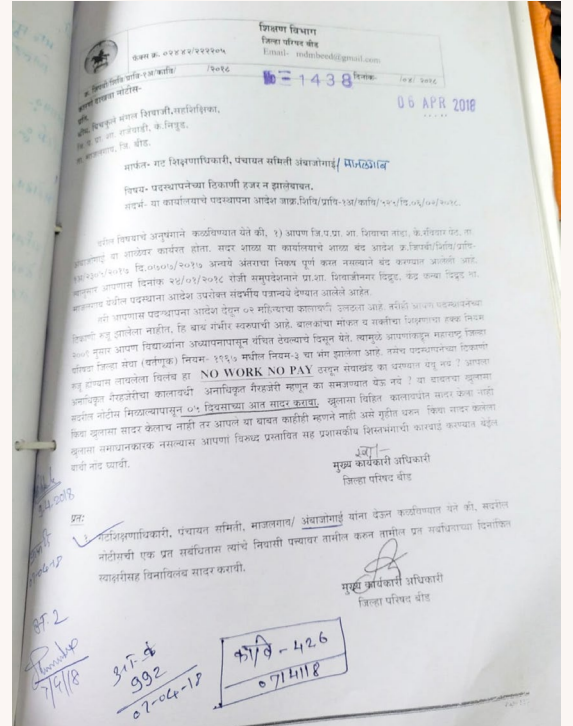 शिक्षण विभाग
जिल्हा परिषद बीड
फॅक्स क्र. ०२४४२/२२२२०५ Email- mdmbeed@gmail.com
क्र. जिपबी/शिवि/प्रावि-१अ/कावि/ /२०१८ № = 1438 दिनांक- /०४/ २०१८
06 APR 2018
कारणे दाखवा नोटीस-
प्रति,
मंगल शिवाजी,सहशिक्षिका,
जि.प.प्रा.शा. राजेवाडी, के.
ता. माजलगाव, जि. बीड.
मार्फत- गट शिक्षणाधिकारी, पंचायत समिती अंबाजोगाई/ माजलगाव
विषय- पदस्थापनेच्या ठिकाणी हजर न झालेबाबत.
संदर्भ- या कार्यालयाचे पदस्थापना आदेश जाक्र.शिवि/प्रावि-१अ/कावि/ दि.०६/०२/२०१८.
वरील विषयाचे अनुषंगाने कळविण्यात येते की, १) आपण जि.प.प्रा.शा. तांडा, ता.
अंबाजोगाई या शाळेवर कार्यरत होता. सदर शाळा या कार्यालयाचे शाळा बंद आदेश क्र.जिपबी/शिवि/प्रावि-
दि.०७/०७/२०१७ अन्वये अंतराचा निकष पूर्ण करत नसल्याने बंद करण्यात आलेली आहे.
त्यानुसार आपणास दिनांक २४/०१/२०१८ रोजी समुपदेशनाने प्रा.शा. शिवाजीनगर दिंद्रुड, केंद्र कन्या दिंद्रुड ता.
माजलगाव येथील पदस्थाना आदेश उपरोक्त संदर्भीय पत्रान्वये देण्यात आलेले आहेत.
तरी आपणास पदस्थापना आदेश देवून ०२ महिन्याचा कालावधी उलटला आहे. तरीही आपण पदस्थापनेच्या
ठिकाणी रुजू झालेला नाहीत, हि बाब गंभीर स्वरुपाची आहे. बालकांचा मोफत व सक्तीचा शिक्षणाचा हक्क नियम
२००९ नुसार आपण विद्यार्थ्यांना अध्यापनापासून वंचित ठेवल्याचे दिसून येते. त्यामुळे आपणाकडून महाराष्ट्र जिल्हा
परिषद जिल्हा सेवा (वर्तणूक) नियम- १९६७ मधील नियम-३ चा भंग झालेला आहे. तसेच पदस्थापनेच्या ठिकाणी
रुजू होण्यास लावलेला विलंब हा NO WORK NO PAY ठरवून सेवाखंड का धरण्यात येवू नये ? आपला
अनाधिकृत गैरहजेरीचा कालावधी अनाधिकृत गैरहजेरी म्हणून का समजण्यात येऊ नये ? या बाबतचा खुलासा
सदरील नोटीस मिळाल्यापासून ०५ दिवसाच्या आत सादर करावा. खुलासा विहित कालावधीत सादर केला नाही
किंवा खुलासा सादर केलाच नाही तर आपले या बाबत काहीही म्हणणे नाही असे गृहीत धरुन किंवा सादर केलेला
खुलासा समाधानकारक नसल्यास आपणां विरुध्द प्रस्तावित सह प्रशासकीय शिस्तभंगाची कारवाई करण्यात येईल
याची नोंद घ्यावी.
स्वा/-
मुख्य कार्यकारी अधिकारी
जिल्हा परिषद बीड
प्रत:
गटशिक्षणाधिकारी, पंचायत समिती, माजलगाव/ अंबाजोगाई यांना देऊन कळविण्यात येते की, सदरील
नोटीसची एक प्रत संबंधितास त्यांचे निवासी पत्त्यावर तामील करुन तामील प्रत संबंधिताच्या दिनांकित
स्वाक्षरीसह विनाविलंब सादर करावी.
मुख्य कार्यकारी अधिकारी
जिल्हा परिषद बीड
07-04-18
7/4/18
992
07-04-18
कावि - 426
07/4/18